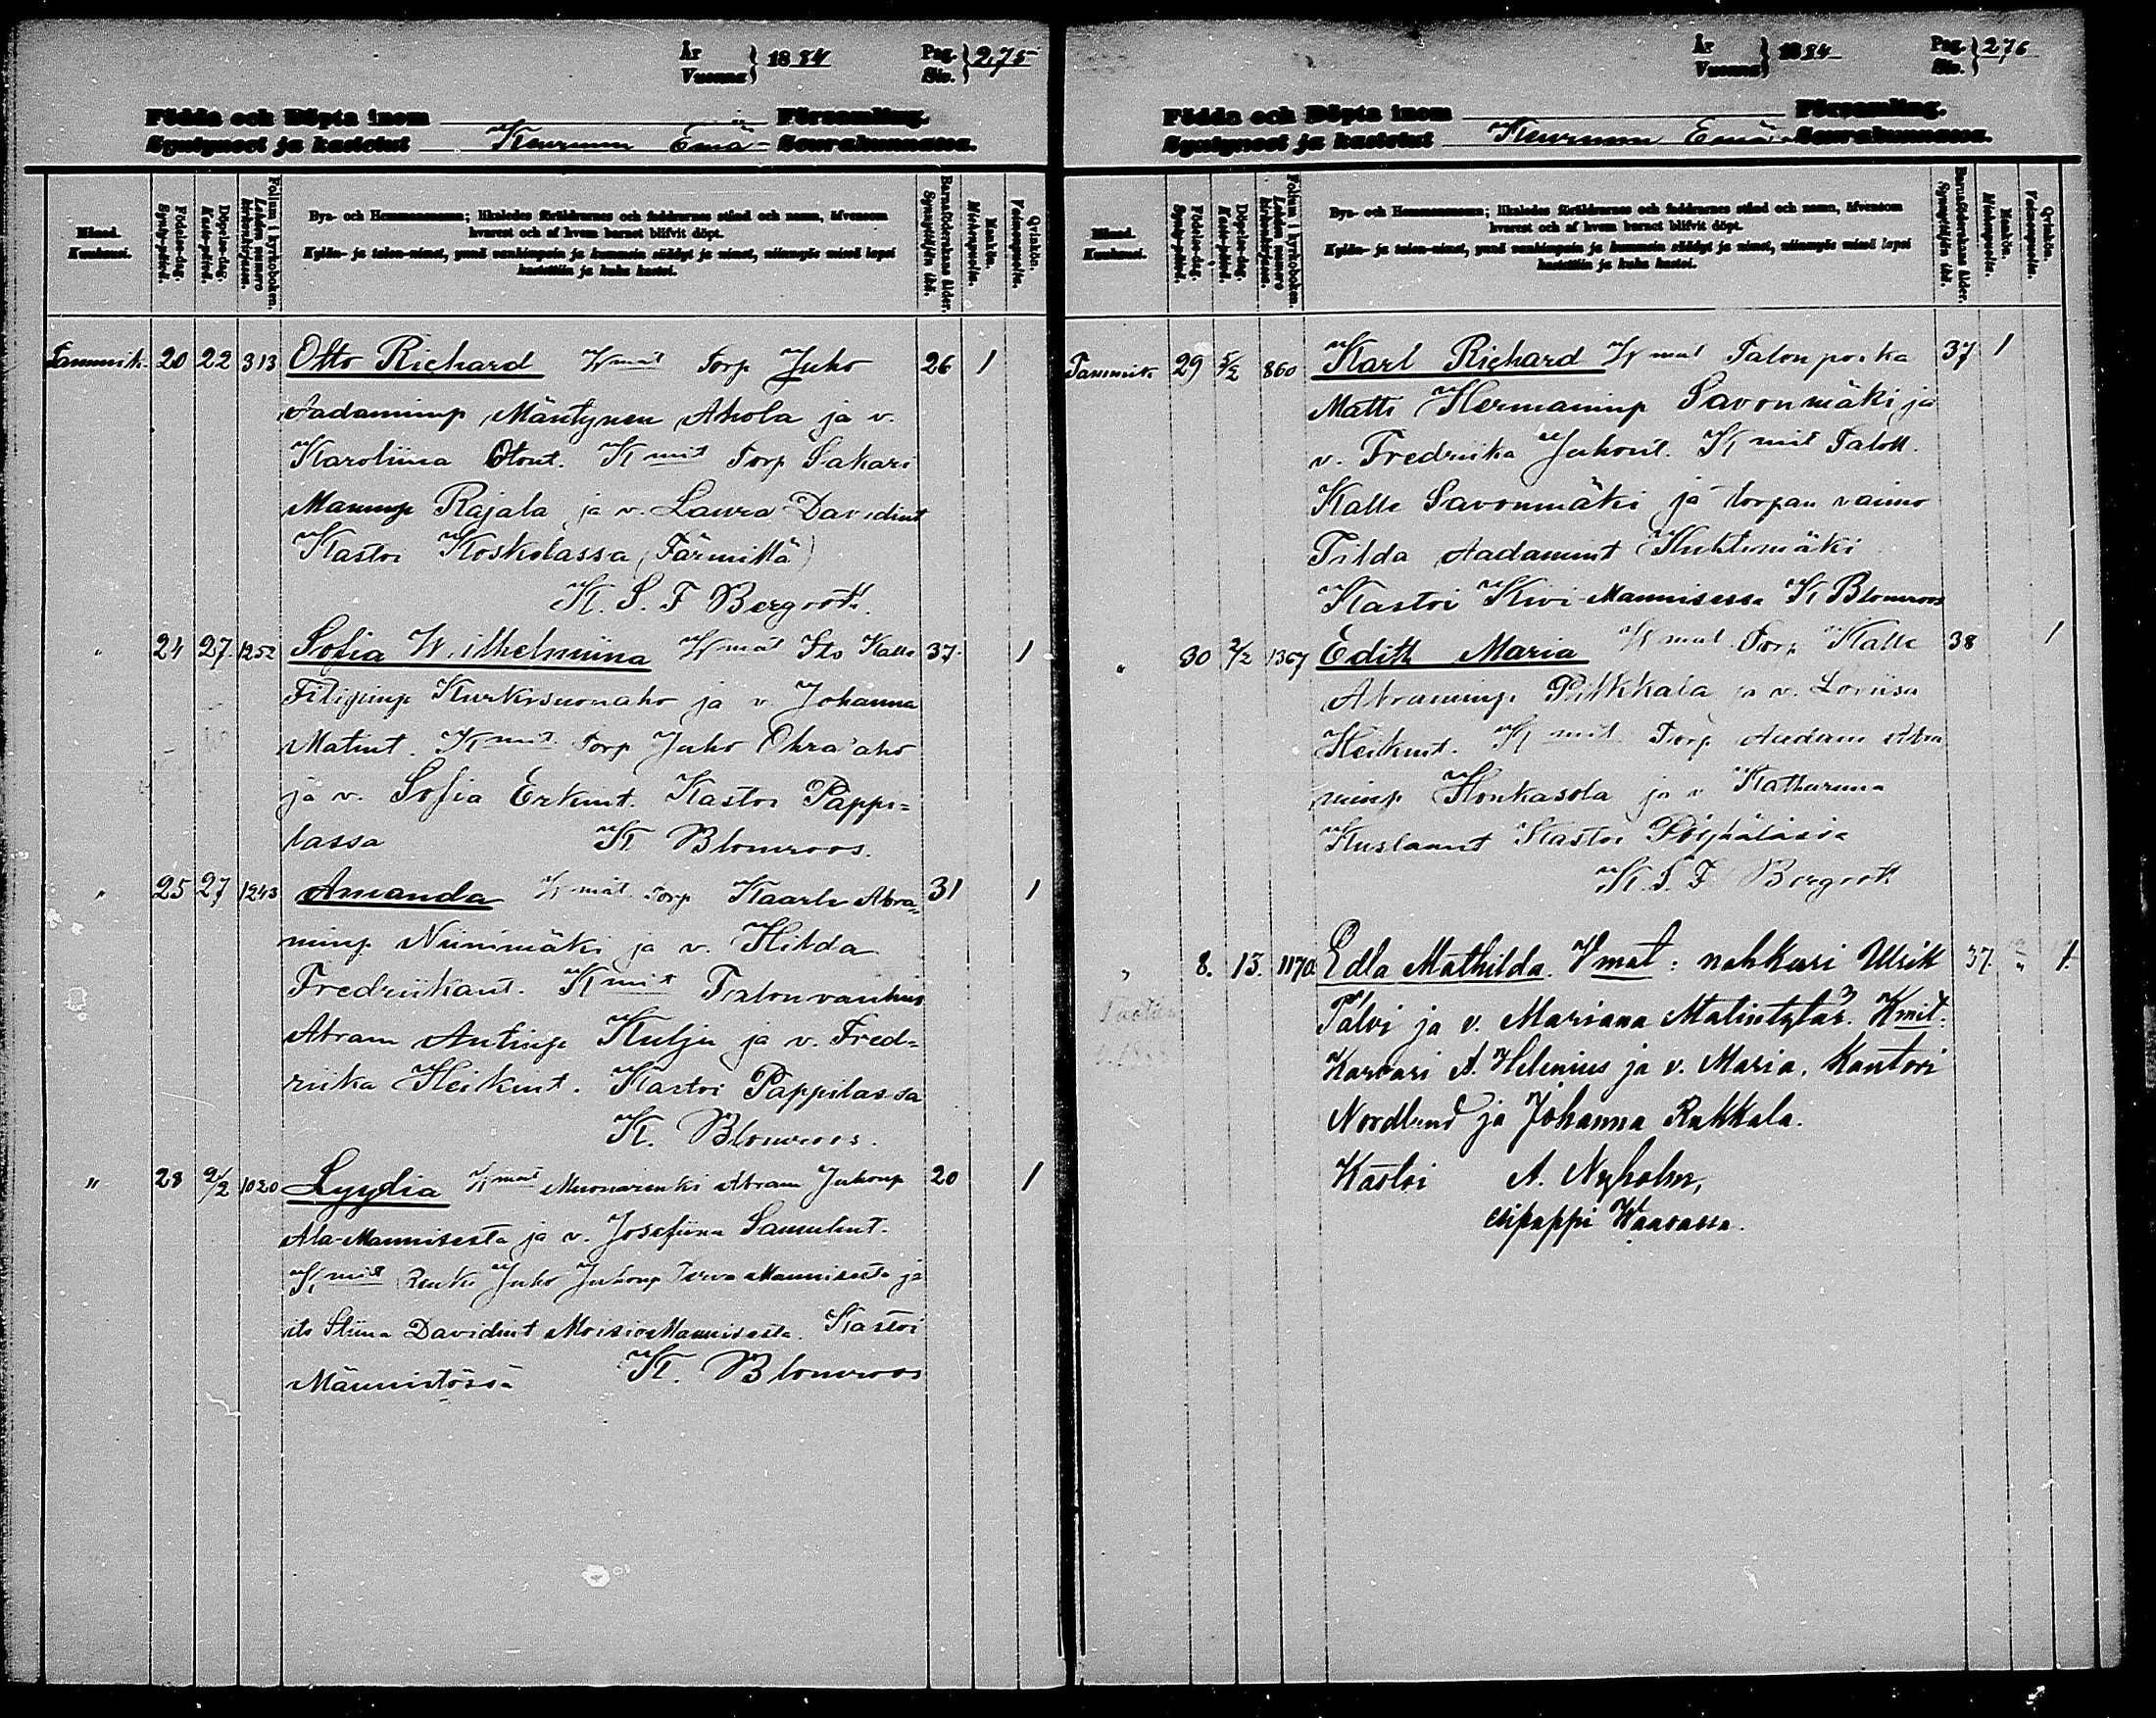 År
Vuonna } 1884
Pag.
Siv. } 275
Födda och Döpta inom Församling.
Syntyneet ja kastetut Keuruun Emä- Seurakunnassa.
Månad.
Kuukausi.
Födelse-dag.
Synty-päivä.
Döpelse-dag.
Kaste-päivä.
Folium i kyrkoboken.
Lehden numero kirkonkirjassa.
Bya- och Hemmansnamn; likaledes föräldrarnes och faddrarnes stånd och namn, äfvensom
hvarest och af hvem barnet blifvit döpt.
Kylän- ja talon-nimet, ynnä vanhimpain ja kummein säädyt ja nimet, niinmyös missä lapsi
kastettiin ja kuka kastoi.
Barnaföderskans ålder.
Synnyttäjän ikä.
Mankön.
Miehenpuolia.
Qvinkön.
Vaimonpuolia.
Tammik. 20 22 313 Otto Richard Wmat Torp Juho 26 1
Aadaminp Mäntynen Ahola ja v.
Karoliina Otont. Kmit Torp Sakari
Manninp Rajala ja v. Laura Davidint
Kastoi Koskolassa (Färmillä)
K. S. F Bergroth.
" 24 27. 1252 Sofia Wilhelmiina Wmat Its Kalle 37 1
Filipinp Kurkisuonaho ja v. Johanna
Matint. Kmit Torp Juho Ohra'aho
ja v. Sofia Erkint. Kastoi Pappi=
lassa K Blomroos.
" 25 27 1243 Amanda Wmat Torp Kaarlo Abra= 31 1
minp Niinimäki ja v. Hilda
Fredriikant. Kmit Talonvanhus
Abram Antinp Kulju ja v. Fred=
riika Heikint. Kastoi Pappilassa
K. Blomroos.
" 28 2/2 1020 Lyydia Wmat Muonarenki Abram Juhonp 20 1
Ala-Mannisesta ja v. Josefiina Samulint.
Kmit Renki Juho Juhonp Mannisesta ja
its Stiina Davidint Moisio Mannisesta. Kastoi
Männistössä K. Blomroos
År
Vuonna } 1884
Pag.
Siv. } 276
Födda och Döpta inom Församling.
Syntyneet ja kastetut Keuruun Emä- Seurakunnassa.
Månad.
Kuukausi.
Födelse-dag.
Synty-päivä.
Döpelse-dag.
Kaste-päivä.
Folium i kyrkoboken.
Lehden numero kirkonkirjassa.
Bya- och Hemmansnamn; likaledes föräldrarnes och faddrarnes stånd och namn, äfvensom
hvarest och af hvem barnet blifvit döpt.
Kylän- ja talon-nimet, ynnä vanhimpain ja kummein säädyt ja nimet, niinmyös missä lapsi
kastettiin ja kuka kastoi.
Barnaföderskans ålder.
Synnyttäjän ikä.
Mankön.
Miehenpuolia.
Qvinkön.
Vaimonpuolia.
Tammik 29 5/2 860 Karl Richard Wmat Talonpoika 37 1
Matti Hermaninp Savonmäki ja
v. Fredriika Juhont. Kmit Talok.
Kalle Savonmäki ja torpan vaimo
Tilda Aadamint Huhtimäki
Kastoi Kivi Mannisessa K Blomroos
" 30 2/2 1367 Edith Maria Wmat Torp Kalle 38 1
Abraminp Pihkkala ja v. Loviisa
Heikint. Kmit Torp Aadam Abra
minp Honkasola ja v Katharina
Kustaant Kastoi Pöyhölässä
K. S. F Bergroth
" 8. 13. 1170. Edla Mathilda. Vmat: nahkuri Ulrik 37. " 1.
Talvi ja v. Mariana Matintytär. Kmit:
Karvari A. Helenius ja v. Maria, Kantori
Nordlund ja Johanna Rukkala.
Kastoi A. Nyholm,
Waasassa.